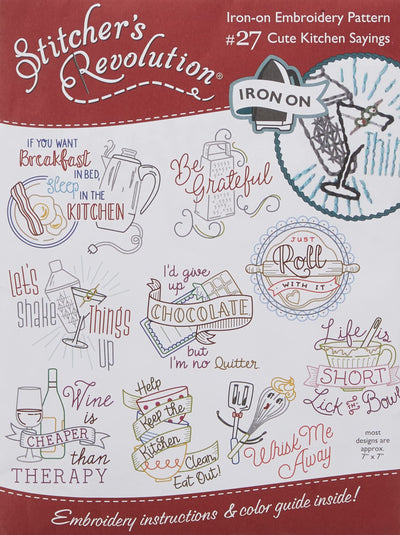 Stitcher's
Revolution®
Iron-on Embroidery Pattern
#27 Cute Kitchen Sayings
IRON ON
IF YOU WANT
Breakfast
IN BED,
Sleep
IN THE
KITCHEN
Be
Grateful
JUST
Roll
WITH IT
Let's
shake
Things
up
I'd give
up
CHOCOLATE
but
I'm no Quitter
Life is
SHORT
Lick the Bowl
Wine
is
CHEAPER
than
THERAPY
Help
Keep the
Kitchen
Clean,
Eat Out!
Whisk Me
Away
most
designs are
approx.
7" x 7"
Embroidery instructions & color guide inside!